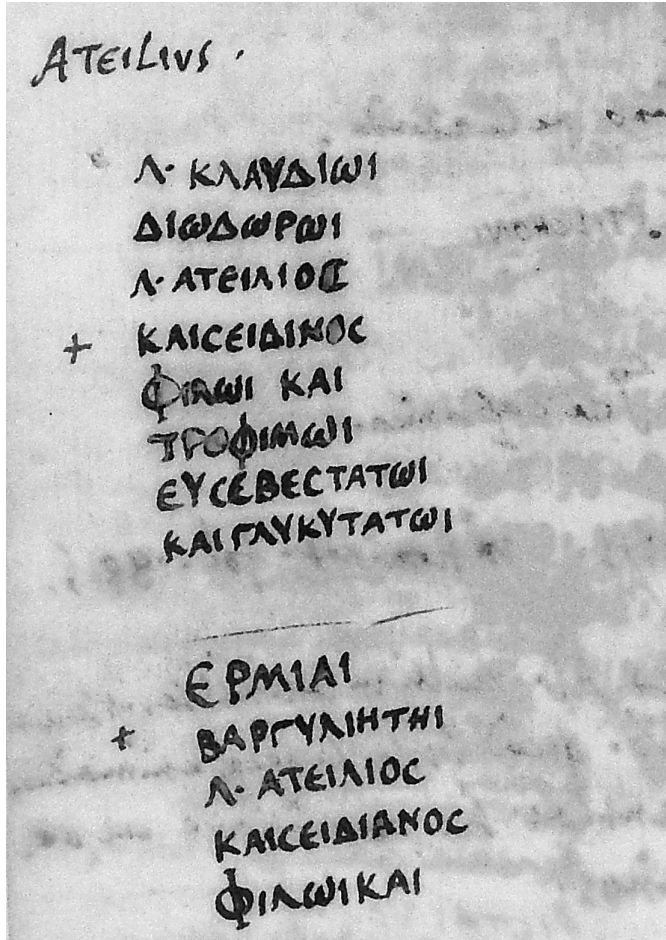 ATEILIVS .
Λ· ΚΛΑΥΔΙωΙ
ΔΙωΔωΡωΙ
Λ· ΑΤΕΙΛΙΟC
+ ΚΑΙCΕΙΔΙΝΟC
ΦΙΛωΙ ΚΑΙ
ΤΡΟΦΙΜωΙ
ΕΥCΕΒΕCΤΑΤωΙ
ΚΑΙΓΛΥΚΥΤΑΤωΙ
ΕΡΜΙΑΙ
+ ΒΑΡΓΥΛΙΗΤΗΙ
Λ· ΑΤΕΙΛΙΟC
ΚΑΙCΕΙΔΙΑΝΟC
ΦΙΛωΙΚΑΙ